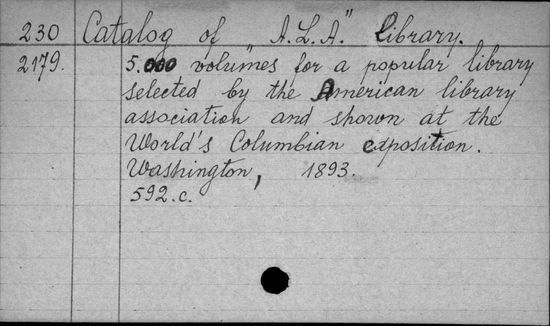 230 Catalog of A.L.A." Library.
2179. 5.000 volumes for a popular library
selected by the American library
association and shown at the
World's Columbian exposition.
Washington, 1893.
592.c.